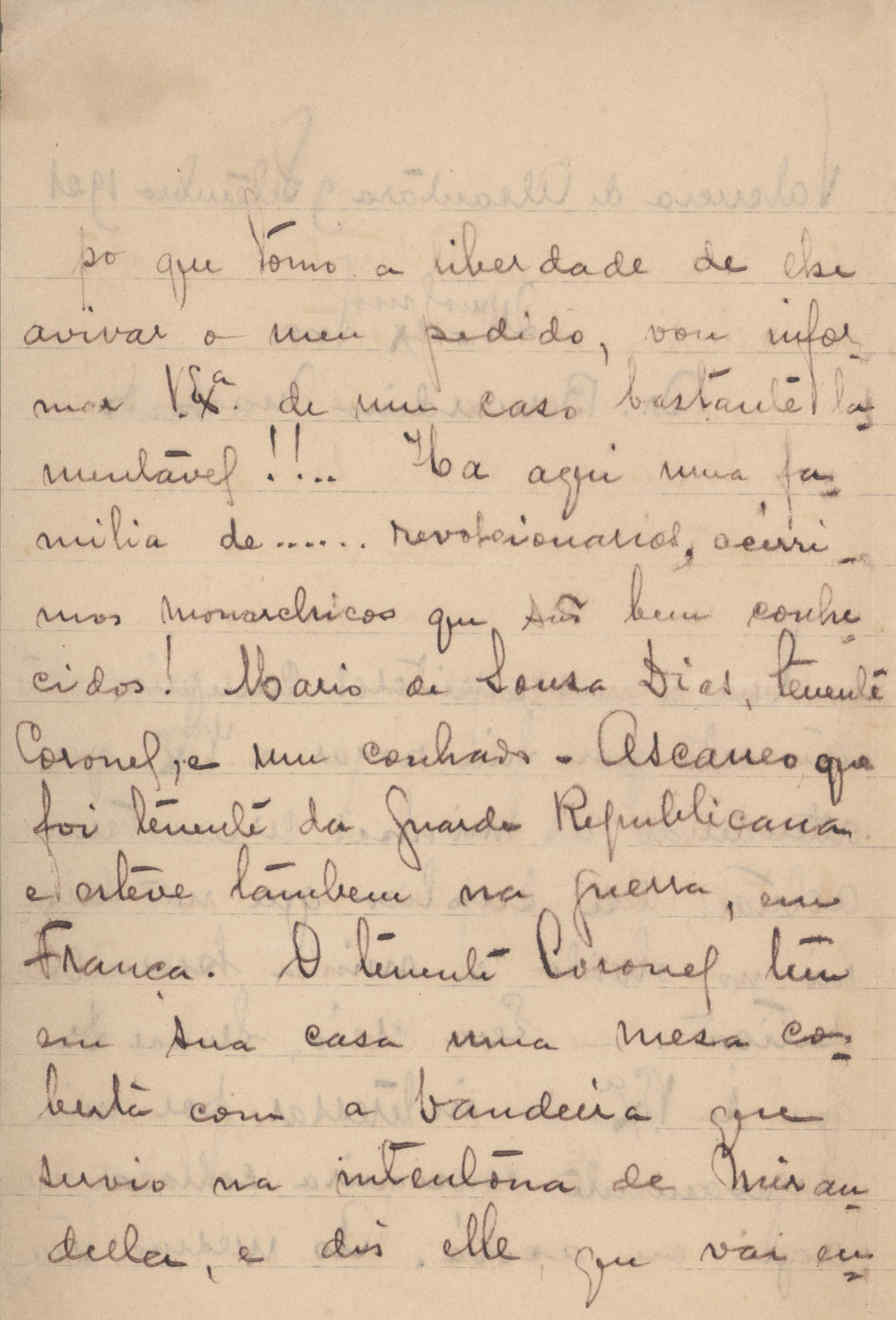 po que tomo a liberdade de lhe
avivar o meu pedido, vou infor-
mar V. Exª. de um caso bastante la-
mentável!!... Ha aqui uma fa-
milia de...... revolucionarios, acerri-
mos monarchicos que são bem conhe-
cidos! Mario de Sousa Dias, tenente
Coronel, e um conhado - Ascaneo, que
foi tenente da Guarda Republicana
e esteve tambem na guerra, em
França. O tenente Coronel tem
em sua casa uma mesa co-
berta com a bandeira que
servio na intentôna de Miran-
della, e dis elle, que vai en-